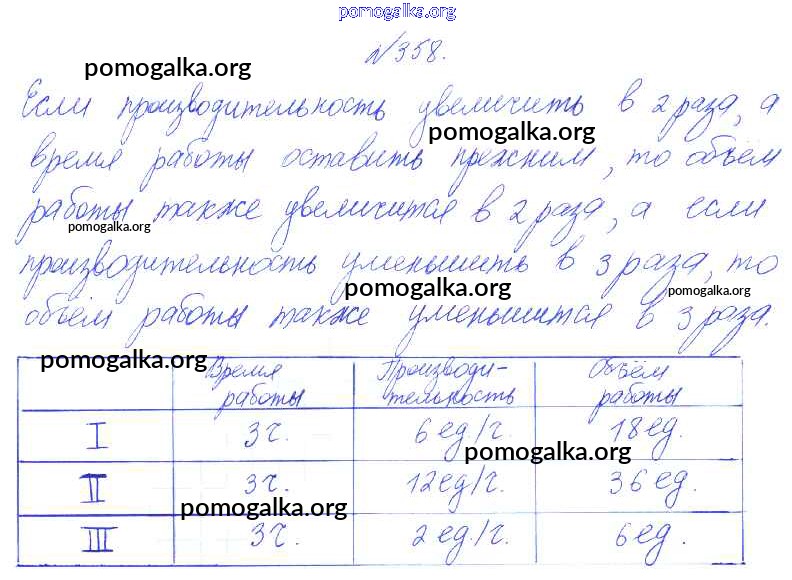 pomogalka.org
№358.
pomogalka.org
Если производительность увеличить в 2 раза, а
pomogalka.org
время работы оставить прежним, то объём
работы также увеличится в 2 раза, а если
pomogalka.org
производительность уменьшить в 3 раза, то
pomogalka.org
pomogalka.org
объём работы также уменьшится в 3 раза.
pomogalka.org
Время работы
Производи-
тельность
Объём работы
I 3 ч. 6 ед./ч. 18 ед.
pomogalka.org
II 3 ч. 12 ед/ч. 36 ед.
pomogalka.org
III 3 ч. 2 ед./ч. 6 ед.
pomogalka.org